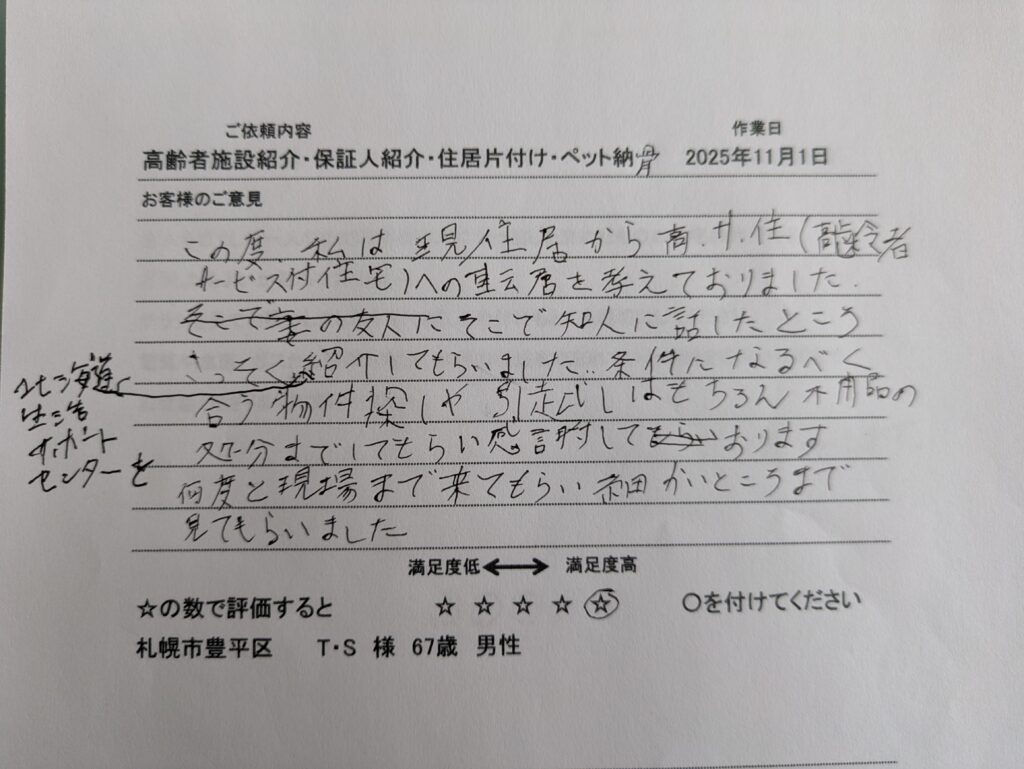 ご依頼内容
作業日
高齢者施設紹介・保証人紹介・住居片付け・ペット納骨
2025年11月1日
お客様のご意見
この度、私は現住居から高.サ.住(高齢者
サービス付住宅)への転居を考えておりました.
そこで妻の友人にそこで知人に話したところ
さっそく紹介してもらいました..条件になるべく
北海道
生活
サポート
センターを
合う物件探しや引越しはもちろん不用品の
処分までしてもらい感謝してもらいおります
何度と現場まで来てもらい細かいところまで
見てもらいました
満足度低⟷満足度高
☆の数で評価すると
☆ ☆ ☆ ☆ ☆
〇を付けてください
札幌市豊平区 T・S 様 67歳 男性